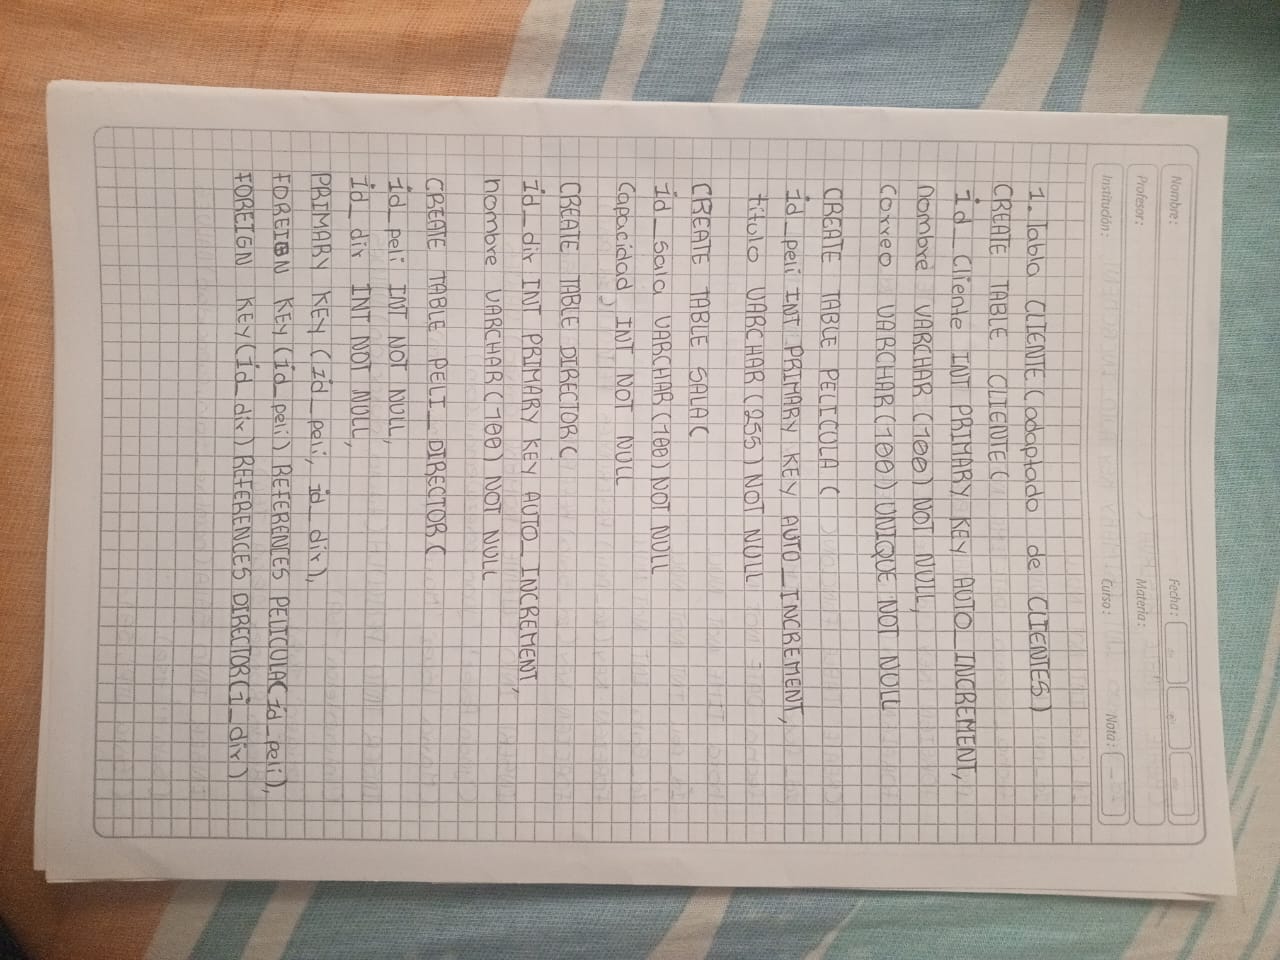 Nombre: Fecha:
Profesor: Materia:
Institución: Curso: Nota:
1. Tabla CLIENTE (adaptado de CLIENTES)
CREATE TABLE CLIENTE (
id_Cliente INT PRIMARY KEY AUTO_INCREMENT,
nombre VARCHAR (100) NOT NULL,
Correo VARCHAR (100) UNIQUE NOT NULL
CREATE TABLE PELICULA (
id_peli INT PRIMARY KEY AUTO_INCREMENT,
titulo VARCHAR (255) NOT NULL
CREATE TABLE SALA (
id_sala VARCHAR (100) NOT NULL
Capacidad INT NOT NULL
CREATE TABLE DIRECTOR (
id_dir INT PRIMARY KEY AUTO_INCREMENT,
nombre VARCHAR (100) NOT NULL
CREATE TABLE PELI_DIRECTOR (
id_peli INT NOT NULL,
id_dir INT NOT NULL,
PRIMARY KEY (id_peli, id_dir),
FOREIGN KEY (id_peli) REFERENCES PELICULA (id_peli),
FOREIGN KEY (id_dir) REFERENCES DIRECTOR (i_dir)